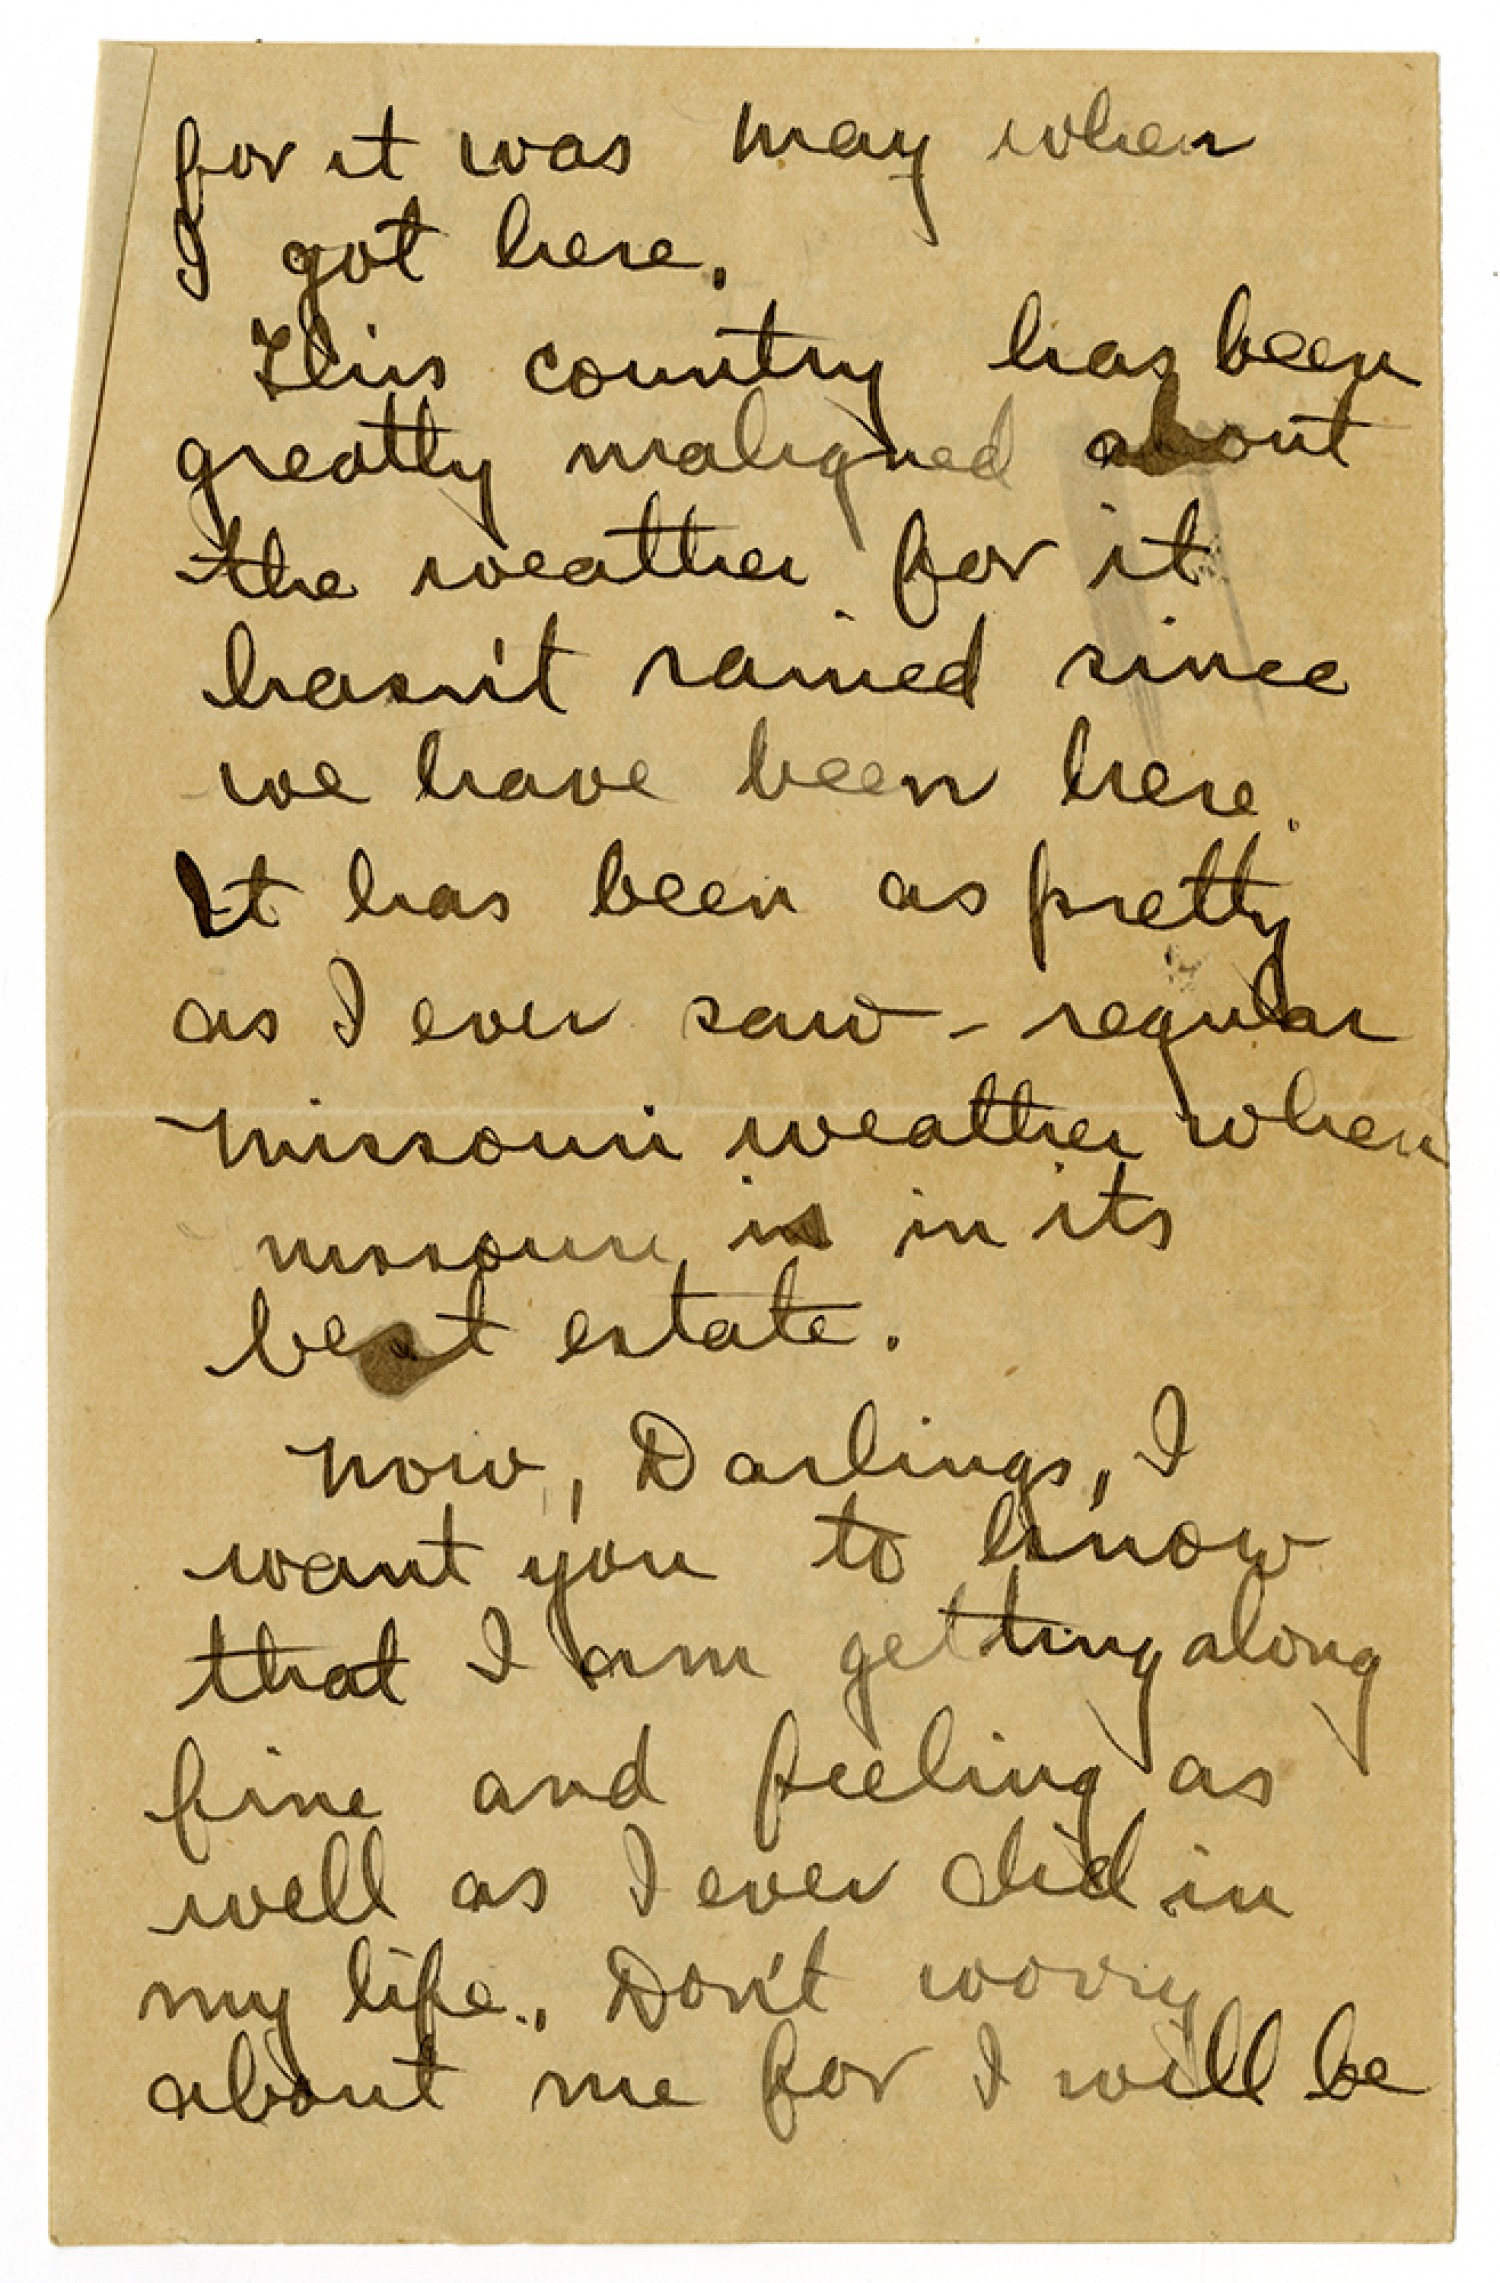 for it was May when
I got here.
This country has been
greatly maligned about
the weather for it
hasn't rained since
we have been here.
It has been as pretty
as I ever saw - regular
Missouri weather when
Missouri is in its
best estate.
Now, Darlings, I
want you to know
that I am getting along
fine and feeling as
well as I ever did in
my life. Don't worry
about me for I will be